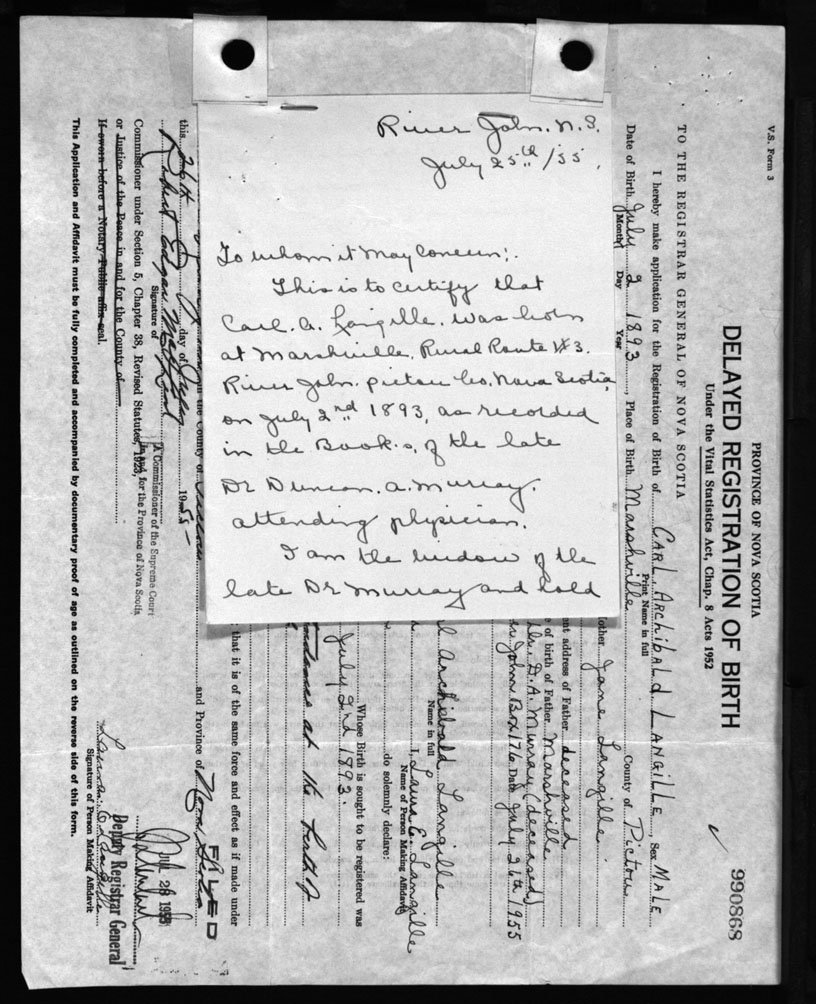 River John. N.S.
July 25th /55.
To whom it May Concern:.
This is to certify that
Carl. A. Langille. was born
at Marshville. Rural Route #3.
River John. Pictou Co. Nova Scotia
on July 2nd 1893, as recorded
in the Book.s. of the late
Dr Duncan. A. Murray.
attending physician.
I am the widow of the
late Dr Murray and hold
V.S. Form 3
PROVINCE OF NOVA SCOTIA
DELAYED REGISTRATION OF BIRTH
Under the Vital Statistics Act, Chap. 8 Acts 1952
990868
TO THE REGISTRAR GENERAL OF NOVA SCOTIA
I hereby make application for the Registration of Birth of CARL ARCHIBALD LANGILLE, Sex MALE
Print Name in full
Date of Birth July 2 1893, Place of Birth Marshville County of Pictou
Month Day Year
other Jane Langille
nt address of Father deceased
e of birth of Father Marshville
Dr. D. A. Murray (deceased)
John Box 176 Date July 26th 1955
I, Laura E. Langille
Name of Person Making Affidavit
do solemnly declare:
l Archibald Langille
Name in full
Whose Birth is sought to be registered was
July 2nd 1893.
at the birth of
that it is of the same force and effect as if made under
the County of
and Province of Nova Scotia
this 26th day of July 1955
Signature of
A Commissioner of the Supreme Court
in and for the Province of Nova Scotia
Commissioner under Section 5, Chapter 38, Revised Statutes, 1923,
or Justice of the Peace in and for the County of
If sworn before a Notary Public affix seal.
FILED
JUL 26 1955
Deputy Registrar General
Signature of Person Making Affidavit
This Application and Affidavit must be fully completed and accompanied by documentary proof of age as outlined on the reverse side of this form.